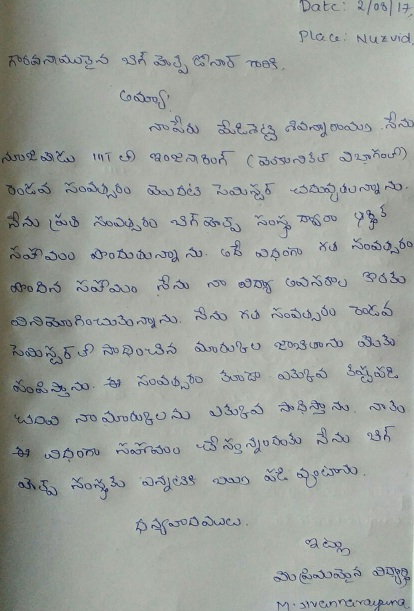 Date: 2/08/17
Place: Nuzvid
గౌరవనీయులైన బిగ్ హెల్ప్ డోనార్ గారికి,
అమ్మా,
నా పేరు మేడిశెట్టి శివన్నారాయణ నేను
నూజివీడు IIIT లో ఇంజనీరింగ్ (మెకానికల్ విభాగంలో)
రెండవ సంవత్సరం మొదటి సెమిస్టర్ చదువుతున్నాను.
నేను ప్రతి సంవత్సరం బిగ్ హెల్ప్ సంస్థ ద్వారా ఆర్థిక
సహాయం పొందుతున్నాను. అదే విధంగా గత సంవత్సరం
పొందిన సహాయం నేను నా విద్యా అవసరాల కొరకు
వినియోగించుకున్నాను. నేను గత సంవత్సరం రెండవ
సెమిస్టర్ లో సాధించిన మార్కుల జాబితాను మీకు
పంపిస్తాను. ఈ సంవత్సరం కూడా ఎక్కువ కష్టపడి
చదివి నా మార్కులను ఎక్కువ సాధిస్తాను. నాకు
ఈ విధంగా సహాయం చేస్తున్నందుకు నేను బిగ్
హెల్ప్ సంస్థకు ఎన్నటికి ఋణ పడి వుంటాను.
ధన్యవాదములు.
ఇట్లు
మీ ప్రియమైన విద్యార్థి
M. Sivannarayana